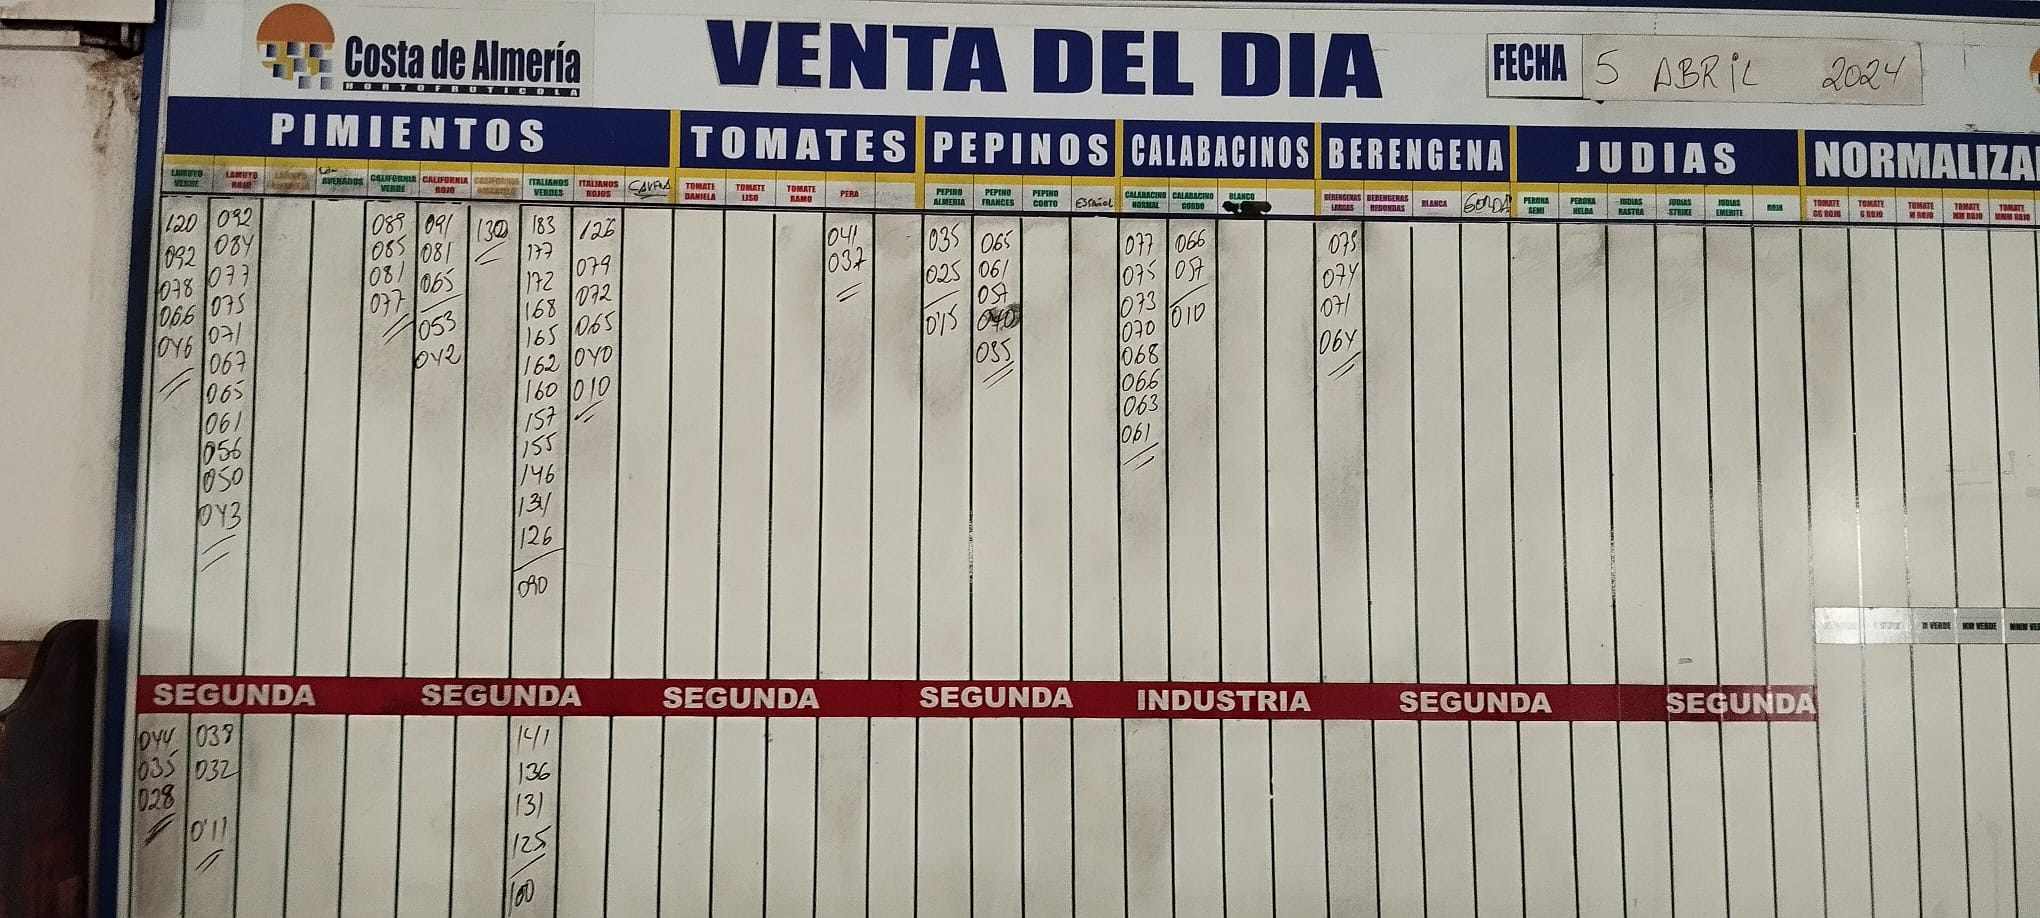 Costa de Almería
HORTOFRUTICOLA
VENTA DEL DIA
FECHA 5 ABRIL 2024
PIMIENTOS TOMATES PEPINOS CALABACINOS BERENGENA JUDIAS NORMALIZA
LAMUYO VERDE
LAMUYO ROJO
LAM AVENADOS
CALIFORNIA VERDE
CALIFORNIA ROJO
CALIFORNIA AMARILLO
ITALIANOS VERDES
ITALIANOS ROJOS
TOMATE DANIELA
TOMATE LISO
TOMATE RAMO
PERA
PEPINO ALMERIA
PEPINO FRANCES
PEPINO CORTO
ESPAÑOL
CALABACINO NORMAL
CALABACINO GORDO
BLANCO
BERENGENAS LARGAS
BERENGENAS REDONDAS
BLANCA
GORDA
PERONA SEMI
PERONA HELDA
JUDIAS RASTRA
JUDIAS STRIKE
JUDIAS EMERITE
ROJA
TOMATE GG ROJO
TOMATE G ROJO
TOMATE M ROJO
TOMATE MM ROJO
TOMATE MMM ROJO
120
092
078
066
046
092
084
077
075
071
067
065
061
056
050
043
089
085
081
077
091
081
065
053
042
130
183
177
172
168
165
162
160
157
155
146
131
126
090
126
079
072
065
040
010
041
037
035
025
015
065
061
057
040
035
077
075
073
070
068
066
063
061
066
057
010
079
074
071
064
M VERDE
MM VERDE
MMM VE
SEGUNDA SEGUNDA SEGUNDA SEGUNDA INDUSTRIA SEGUNDA SEGUNDA
044
035
028
038
032
0'11
141
136
131
125
100